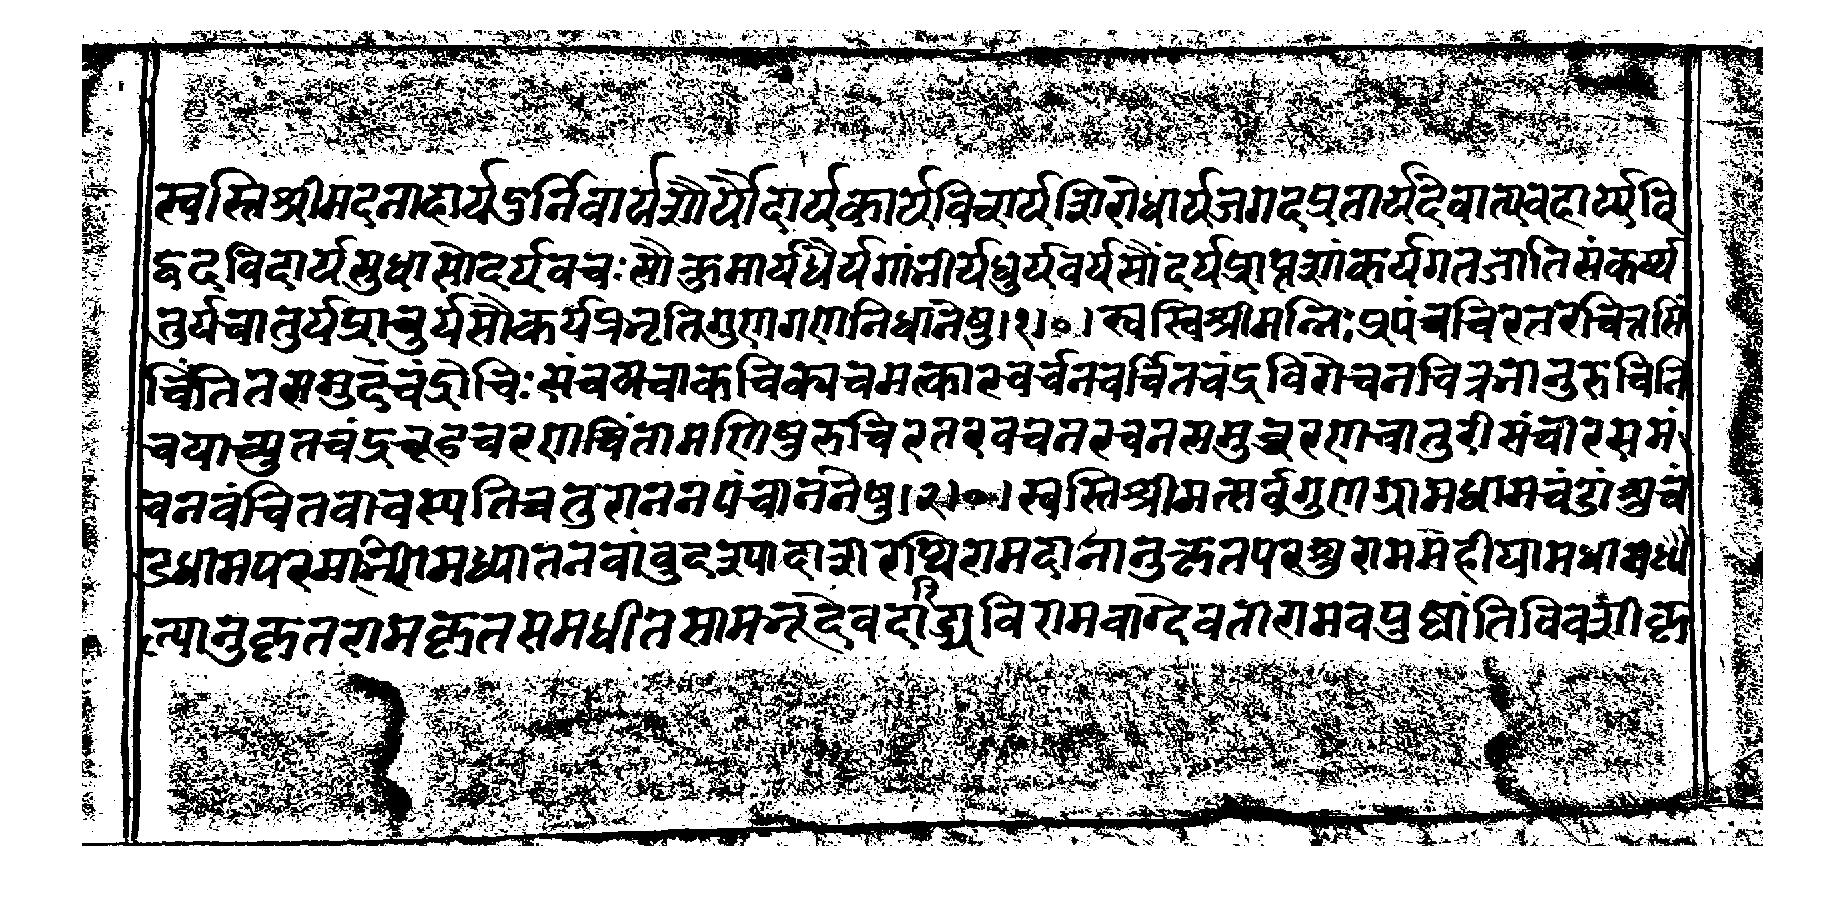 स्वस्तिश्रीमदनाहार्यदुर्निवार्यशौर्यौदार्यकार्यविचार्यशिरोधार्यजगदप्रतार्यदेवात्यवहार्य्यवि
द्वदविदार्यसुधासोदर्यवचःसौकुमार्यधैर्यगांभीर्यधुर्यवर्यसौंदर्यप्राप्तशांकर्यगतजातिसंकर्य्य
तुर्यचातुर्यप्राचुर्यसौकर्यप्रभृतिगुणगणनिधानेषु।१।०।स्वस्तिश्रीमन्निःप्रपंचचिरतरचित्त
चिंतितसमुदंचंद्रोचिःसंचयचाकचिक्यचमत्कारचर्चनचर्चितचंद्रविरोचनचित्रभानुरुचिनि
चयाच्युतचंद्रचूडचरणचिंतामणिषुरुचिरतरवचनरचनसमुच्चरणचातुरीसंचारसमं
चनवंचितवाचस्पतिचतुराननपंचाननेषु।२।०।स्वस्तिश्रीमत्सर्वगुणग्रामधामचंडांशुचं
डधामपरमाभिरामध्यातनवांबुदश्यादाशरथिरामदानानुकृतपरशुराममहीयामधाम
त्यानुकृतरामकृतसमधीतसामन्ऋदेवदांगद्यविरामवाग्देवतारामवपुःशांतिविवशीकृ